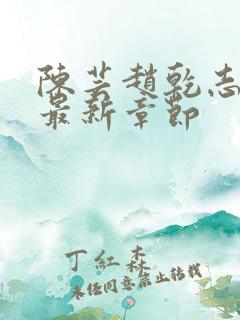 陳芸趙乾志
最新章節
丁紅森
未经同意禁止转载